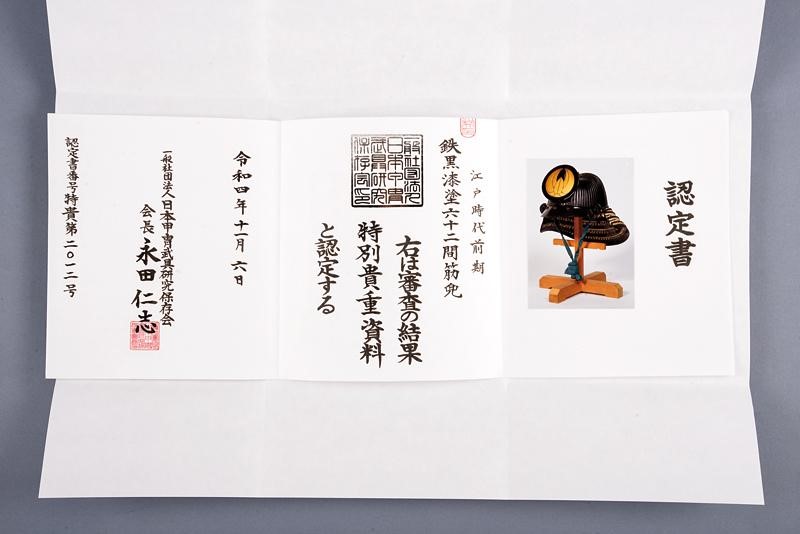 認定書
江戸時代前期
鉄黒漆塗六十二間筋兜
一般社団法人
日本甲冑
武具研究
保存会印
右は審査の結果
特別貴重資料
と認定する
令和四年十一月六日
一般社団法人日本甲冑武具研究保存会
会長 永田仁志
認定書番号特貴第二〇一二号